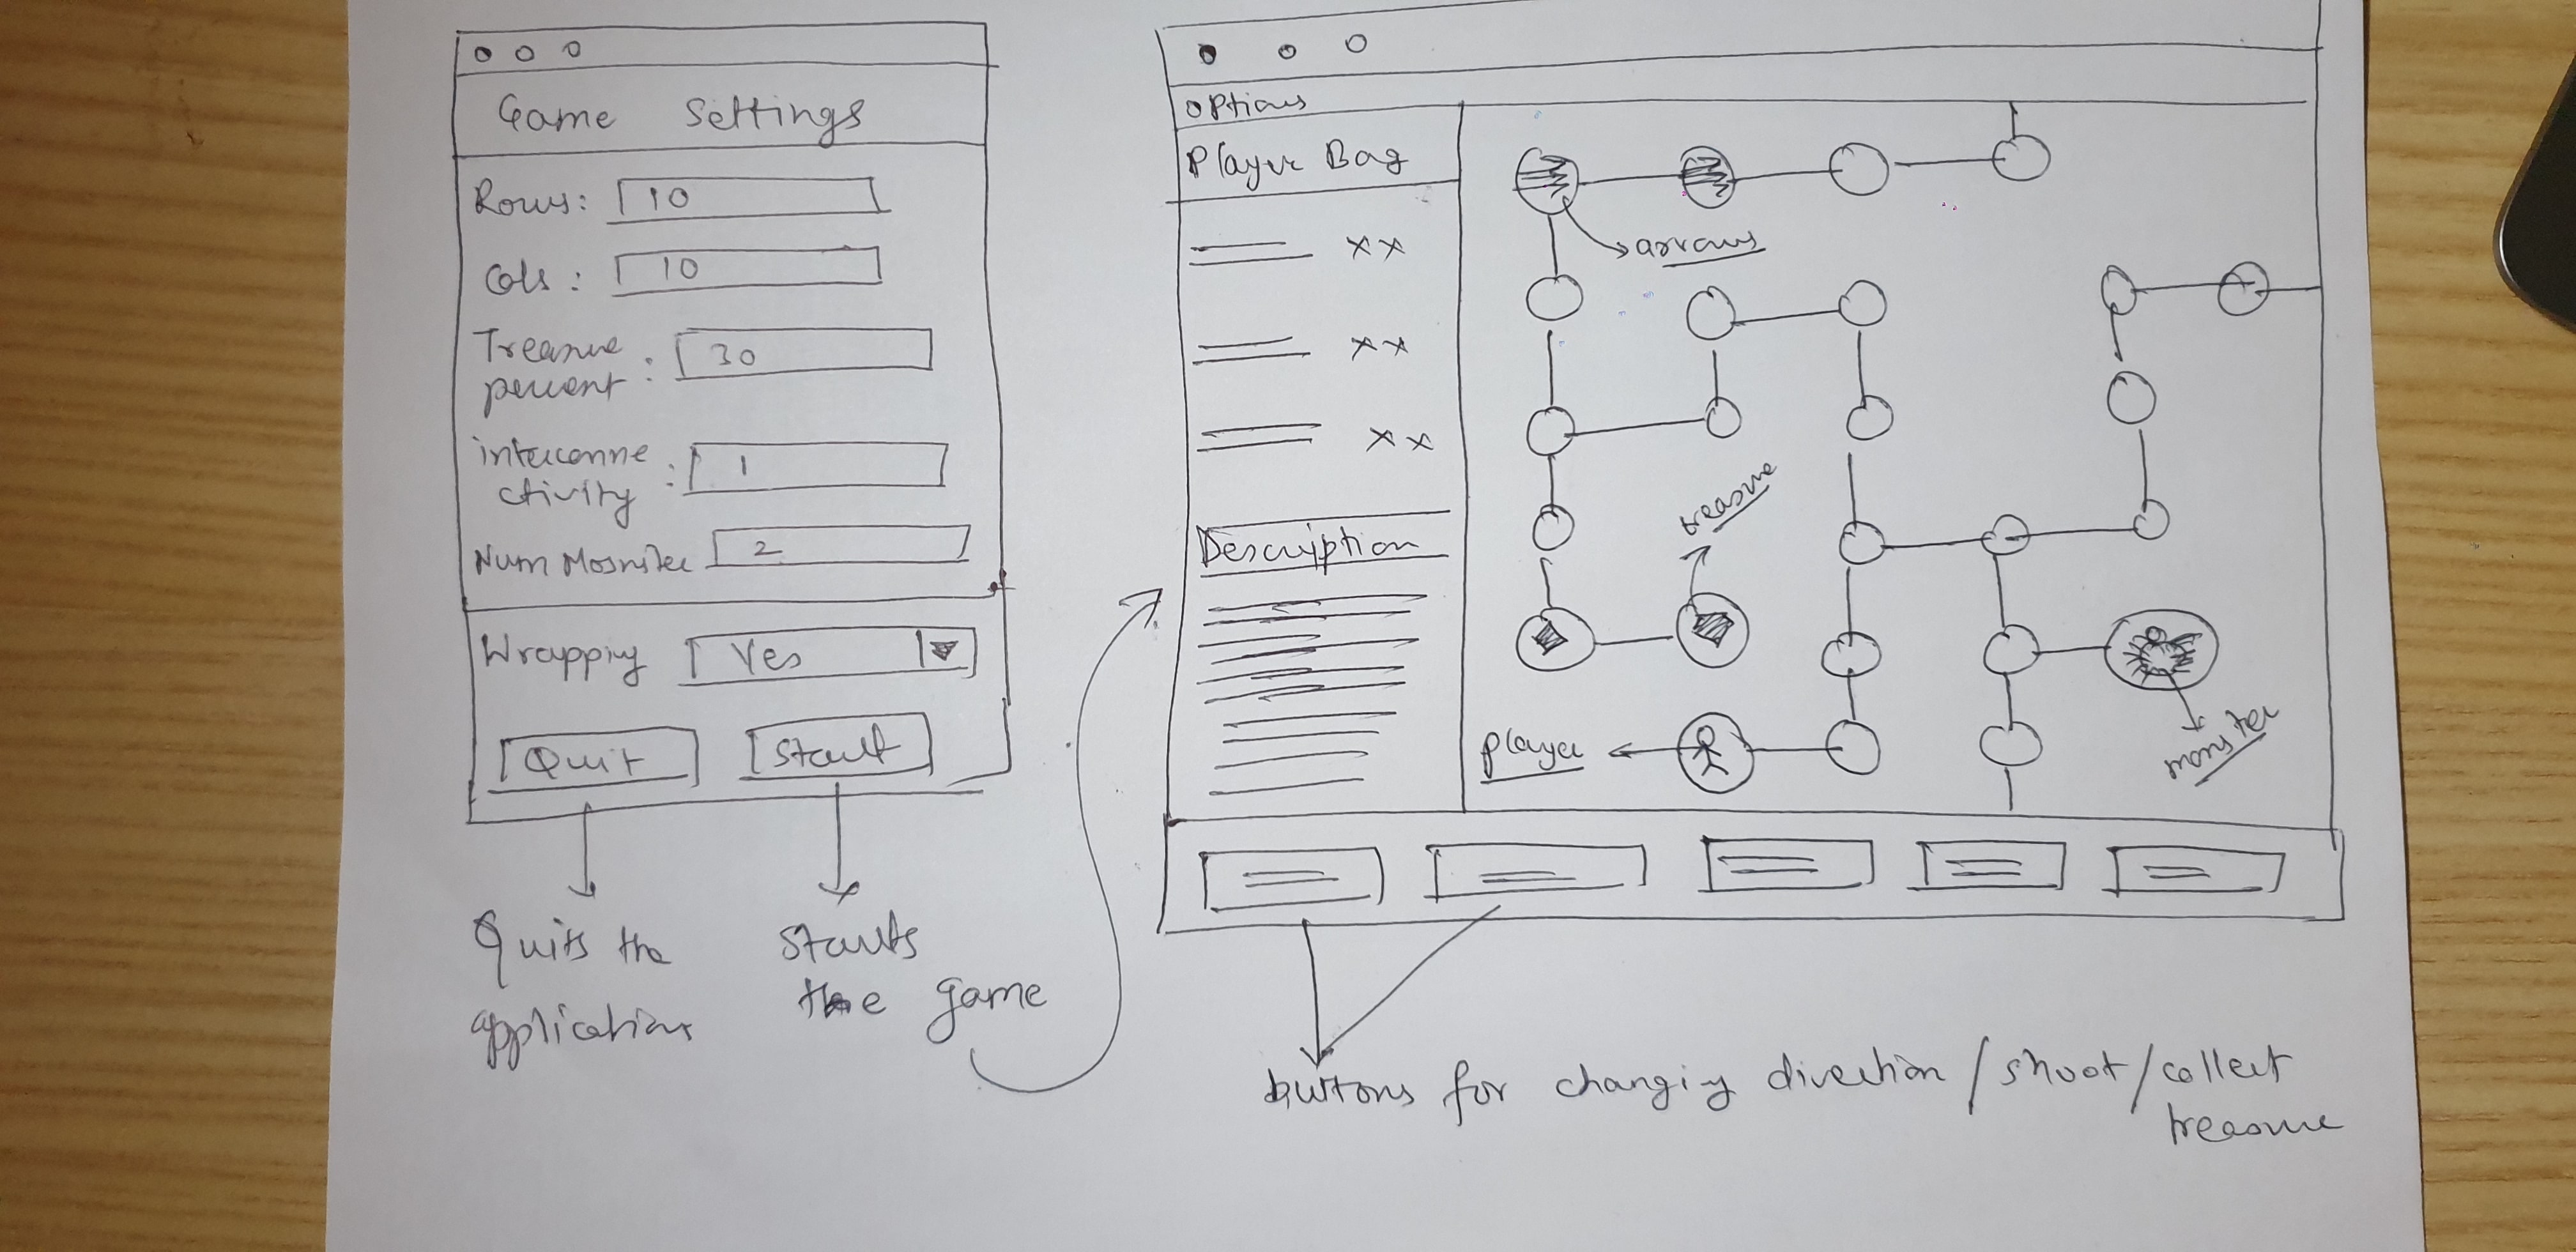 Game Settings
Rows: 10
Cols: 10
Treasure
percent: 30
interconne
ctivity: 1
Num Mosnster 2
Wrapping Yes
Quit Start
Quits the
application
starts
the game
options
Player Bag
xx
xx
xx
Description
arrows
treasure
player
monster
buttons for changing direction / shoot / collect
treasure